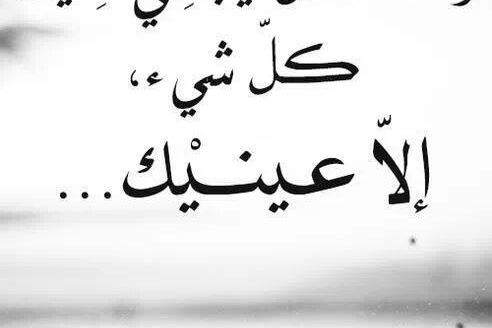 كلّ شيء،
إلاّ عينيْك...